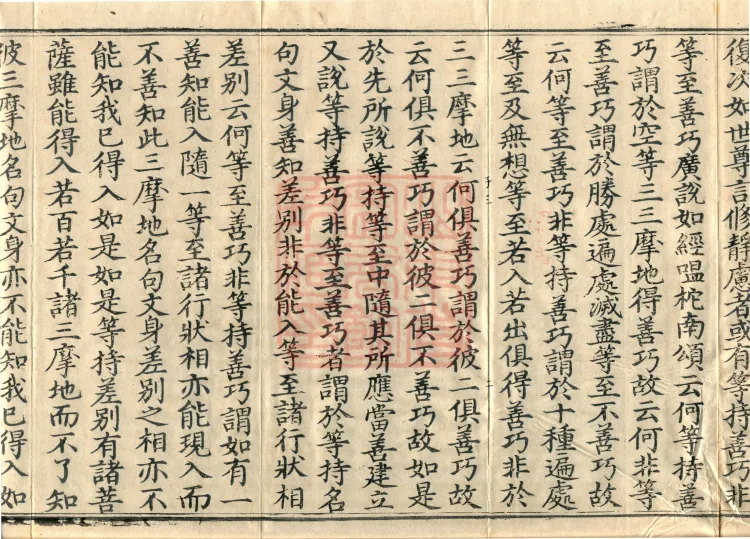 復次如世尊言修靜慮者或有等持善巧非
等至善巧廣說如經嗢柁南頌云何等持善
巧謂於空等三三摩地得善巧故云何非等
至善巧謂於勝處遍處滅盡等至不善巧故
云何等至善巧非等持善巧謂於十種遍處
等至及無想等至若入若出俱得善巧非於
三三摩地云何俱善巧謂於彼二俱善巧故
云何俱不善巧謂於彼二俱不善巧故如是
於先所說等持等至中隨其所應當善建立
又說等持善巧非等至善巧者謂於等持名
句文身善知差別非於能入等至諸行狀相
差別云何等至善巧非等持善巧謂如有一
善知能入隨一等至諸行狀相亦能現入而
不善知此三摩地名句文身差別之相亦不
能知我已得入如是如是等持差別有諸菩
薩雖能得入若百若千諸三摩地而不了知
彼三摩地名句文身亦不能知我已得入如